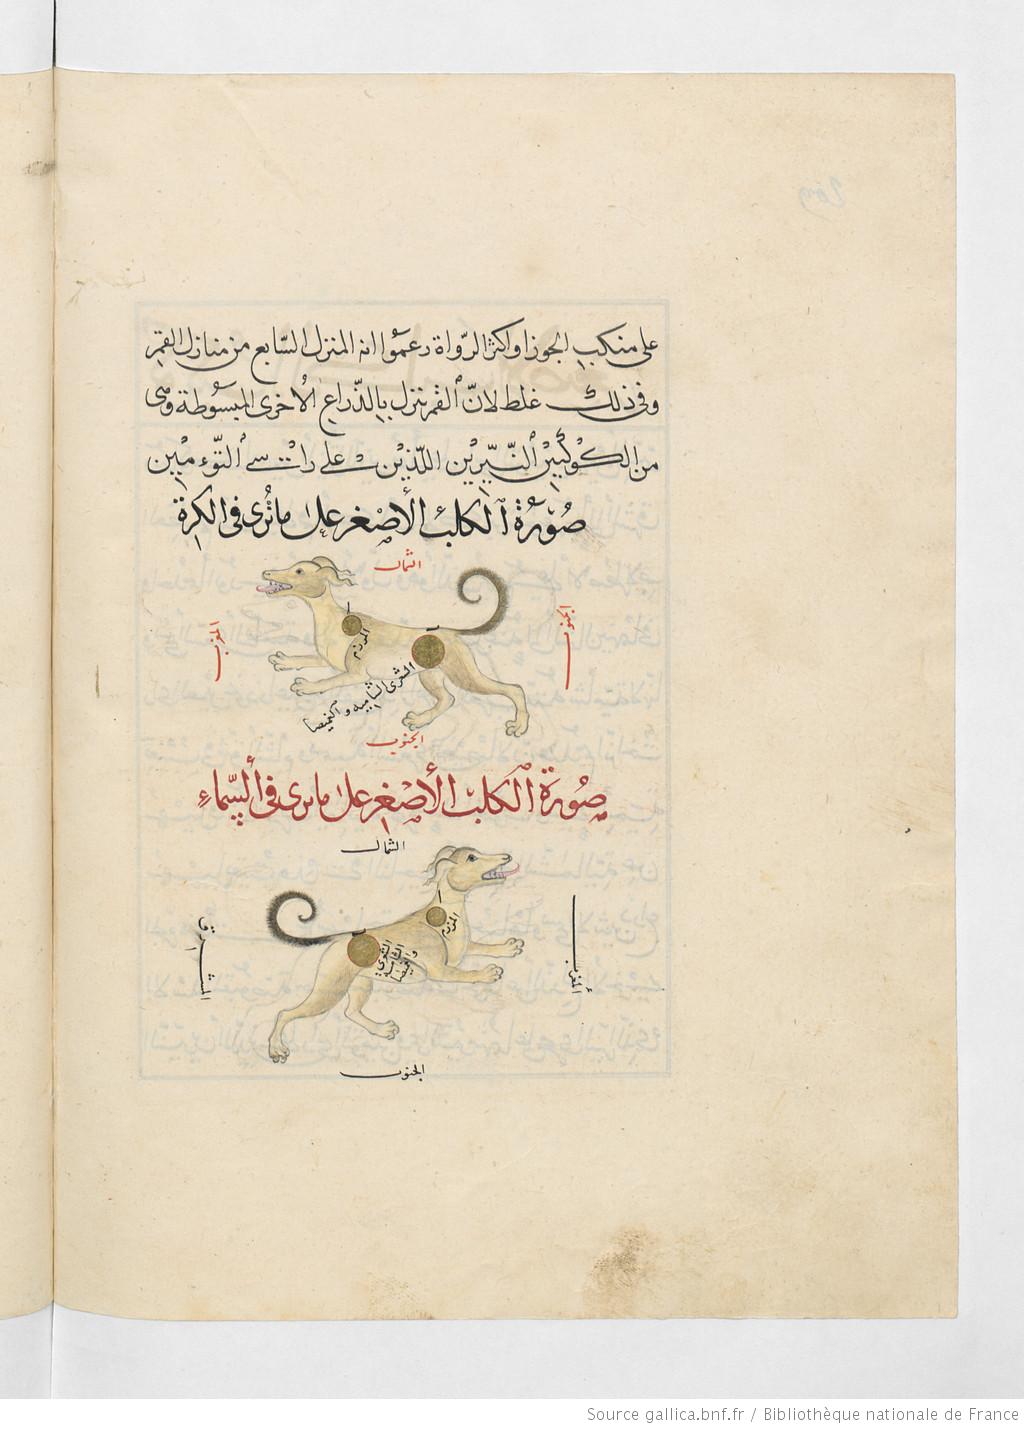 على منكب الجوزا واكثر الرّواة زعموا انه المنزل السّابع من منازل القمر
وفى ذلك غلط لانّ ٱلقمر ينزل بالذّراع الأخرى المبسوطة وهى
من الكوْكبَيْن ٱلنّيّريْن اللّذيْن على راسى ٱلتّوءمَيْن
صُوْرَة ٱلكلب الأصْغر على ما تُرى فى الكرة
الشمال
الجنوب
المرزم
الشعرى الشاميه والغميصا
الجنوب
صُورَة ٱلكلب الأَصْغر على ما يرى فى ٱلسّماءِ
الشمال
المشرق
المرزم
الشعرى
الشاميه
والغميصا
المغرب
الجنوب
Source gallica.bnf.fr / Bibliothèque nationale de France